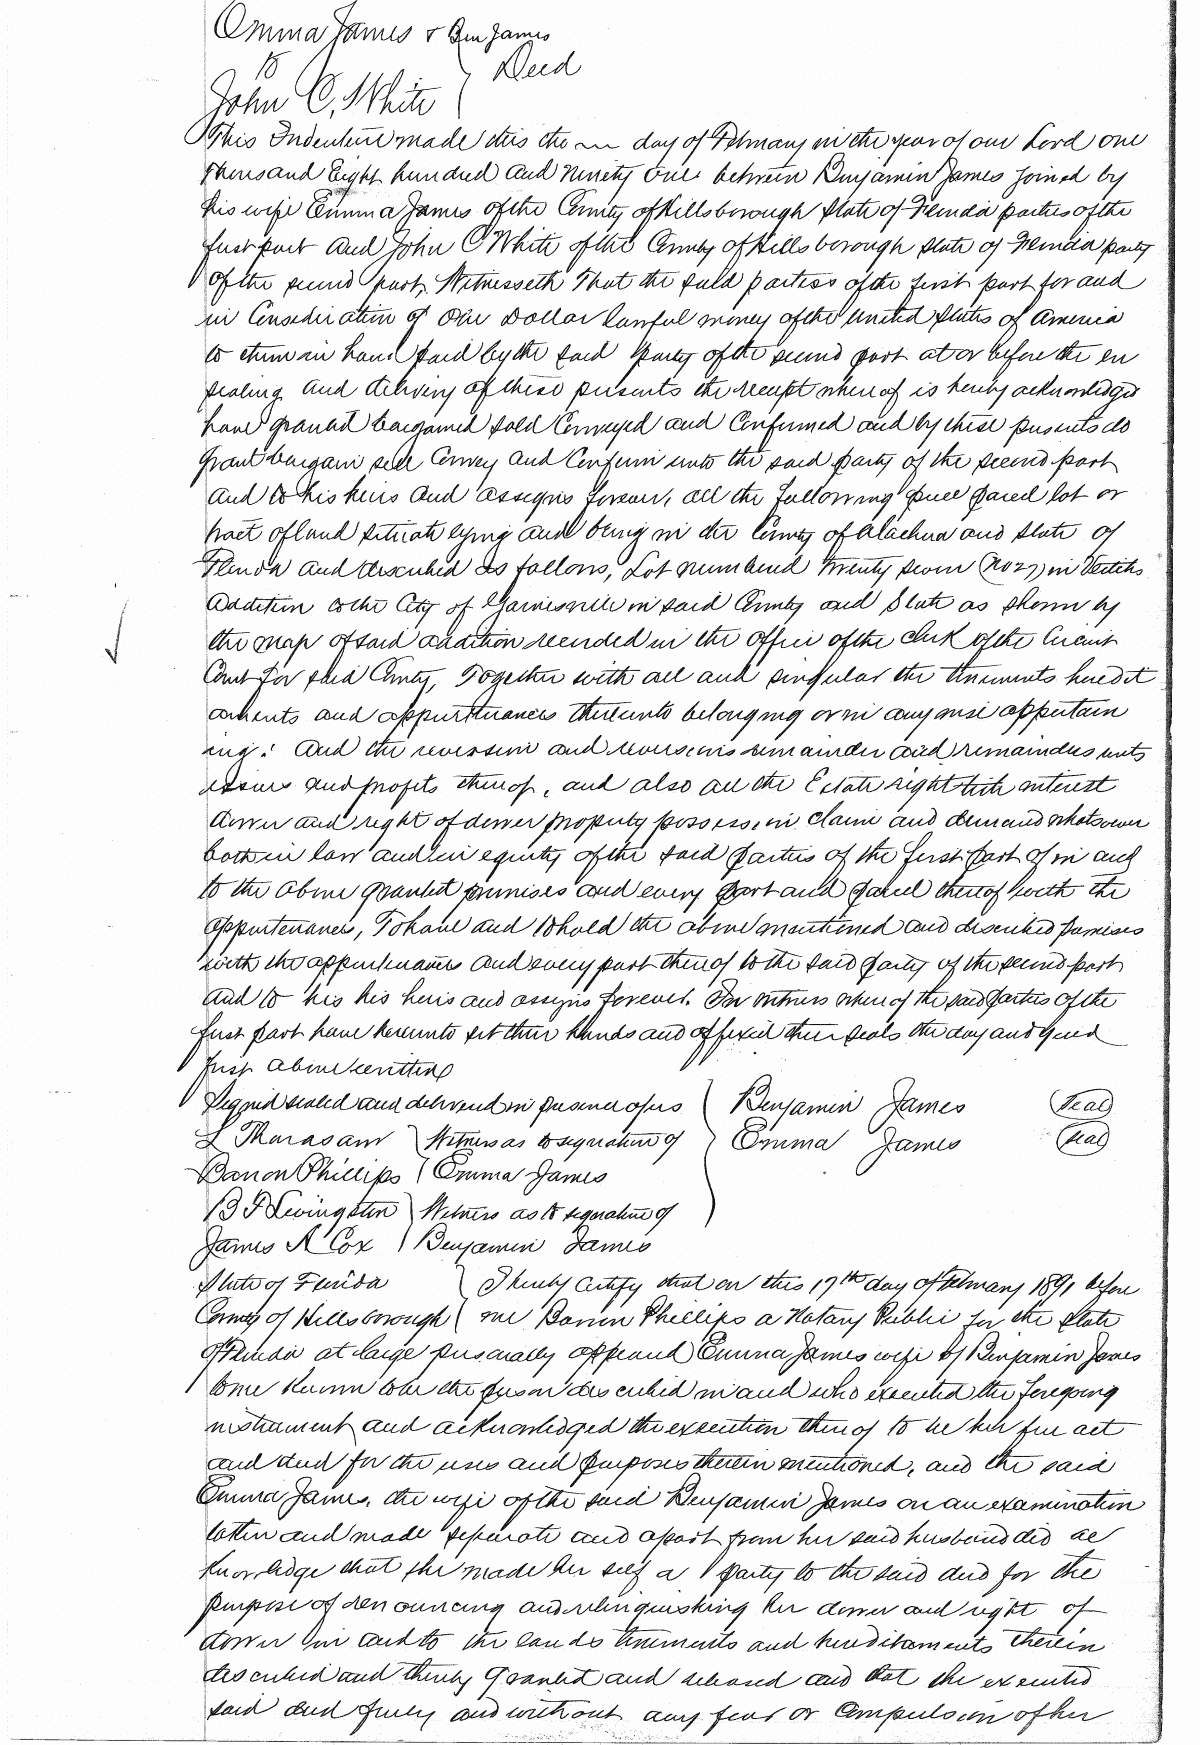 Emma James & Ben James
to
Deed
John C. White
This Indenture made this the day of February in the year of our Lord one
thousand Eight hundred and Ninety one between Benjamin James joined by
his wife Emma James of the County of Hillsborough State of Florida parties of the
first part and John C White of the County of Hillsborough State of Florida party
of the second part, Witnesseth That the said parties of the first part for and
in Consideration of One Dollar lawful money of the United States of America
to them in hand paid by the said party of the second part at or before the en
sealing and delivery of these presents the receipt whereof is hereby acknowledged
have granted bargained sold Conveyed and Confirmed and by these presents do
Grant bargain sell Convey and Confirm unto the said party of the second part
and to his heirs and assigns forever, all the following piece parcel lot or
tract of land situate lying and being in the County of Alachua and State of
Florida and described as follows, Lot numbered Twenty seven (No 27) in
Addition to the City of Gainesville in said County and State as shown by
the map of said addition recorded in the office of the clerk of the Circuit
Court for said County, Together with all and singular the tenements heredit
aments and appurtenances thereunto belonging or in any wise appertain
ing: And the reversion and reversions remainder and remainders rents
issues and profits thereof, and also all the Estate right title interest
dower and right of dower property possession claim and demand whatsoever
both in law and in equity of the said parties of the first part of in and
to the above granted premises and every part and parcel thereof with the
appurtenances, To have and to hold the above mentioned and described premises
with the appurtenances and every part thereof to the said party of the second part
and to his his heirs and assigns forever. In witness where of the said parties of the
first part have hereunto set their hands and affixed their seals the day and year
first above written
Signed sealed and delivered in presence of us Benjamin James (Seal)
Witness as to signature of Emma James (Seal)
Barron Phillips Emma James
B F Livingston Witness as to signature of
James A Cox Benjamin James
State of Florida I hereby certify that on this 17th day of February 1891 before
County of Hillsborough me Barron Phillips a Notary Public for the State
of Florida at large personally appeared Emma James wife of Benjamin James
to me known to be the person described in and who executed the foregoing
instrument and acknowledged the execution thereof to be her free act
and deed for the uses and purposes therein mentioned, and the said
Emma James, the wife of the said Benjamin James on an examination
taken and made separate and apart from her said husband did ac
knowledge that she made her self a party to the said deed for the
purpose of renouncing and relinquishing her dower and right of
dower in and to the lands tenements and hereditaments therein
described and thereby granted and released and that she executed
said deed freely and without any fear or compulsion of her